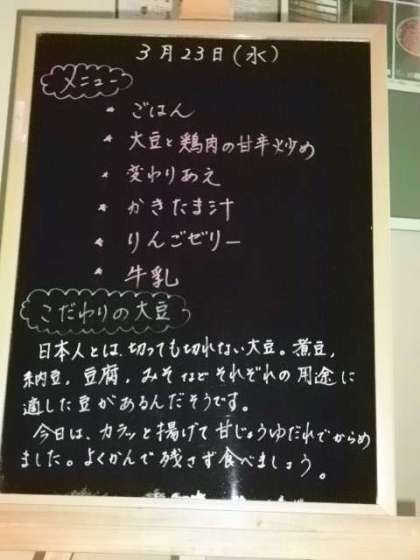 3月23日(水)
メニュー
* ごはん
* 大豆と鶏肉の甘辛炒め
* 変わりあえ
* かきたま汁
* りんごゼリー
* 牛乳
こだわりの大豆
日本人とは、切っても切れない大豆。煮豆,
納豆, 豆腐, みそなどそれぞれの用途に
適した豆があるんだそうです。
今日は、カラッと揚げて甘じょうゆだれでからめ
ました。よくかんで残さず食べましょう。